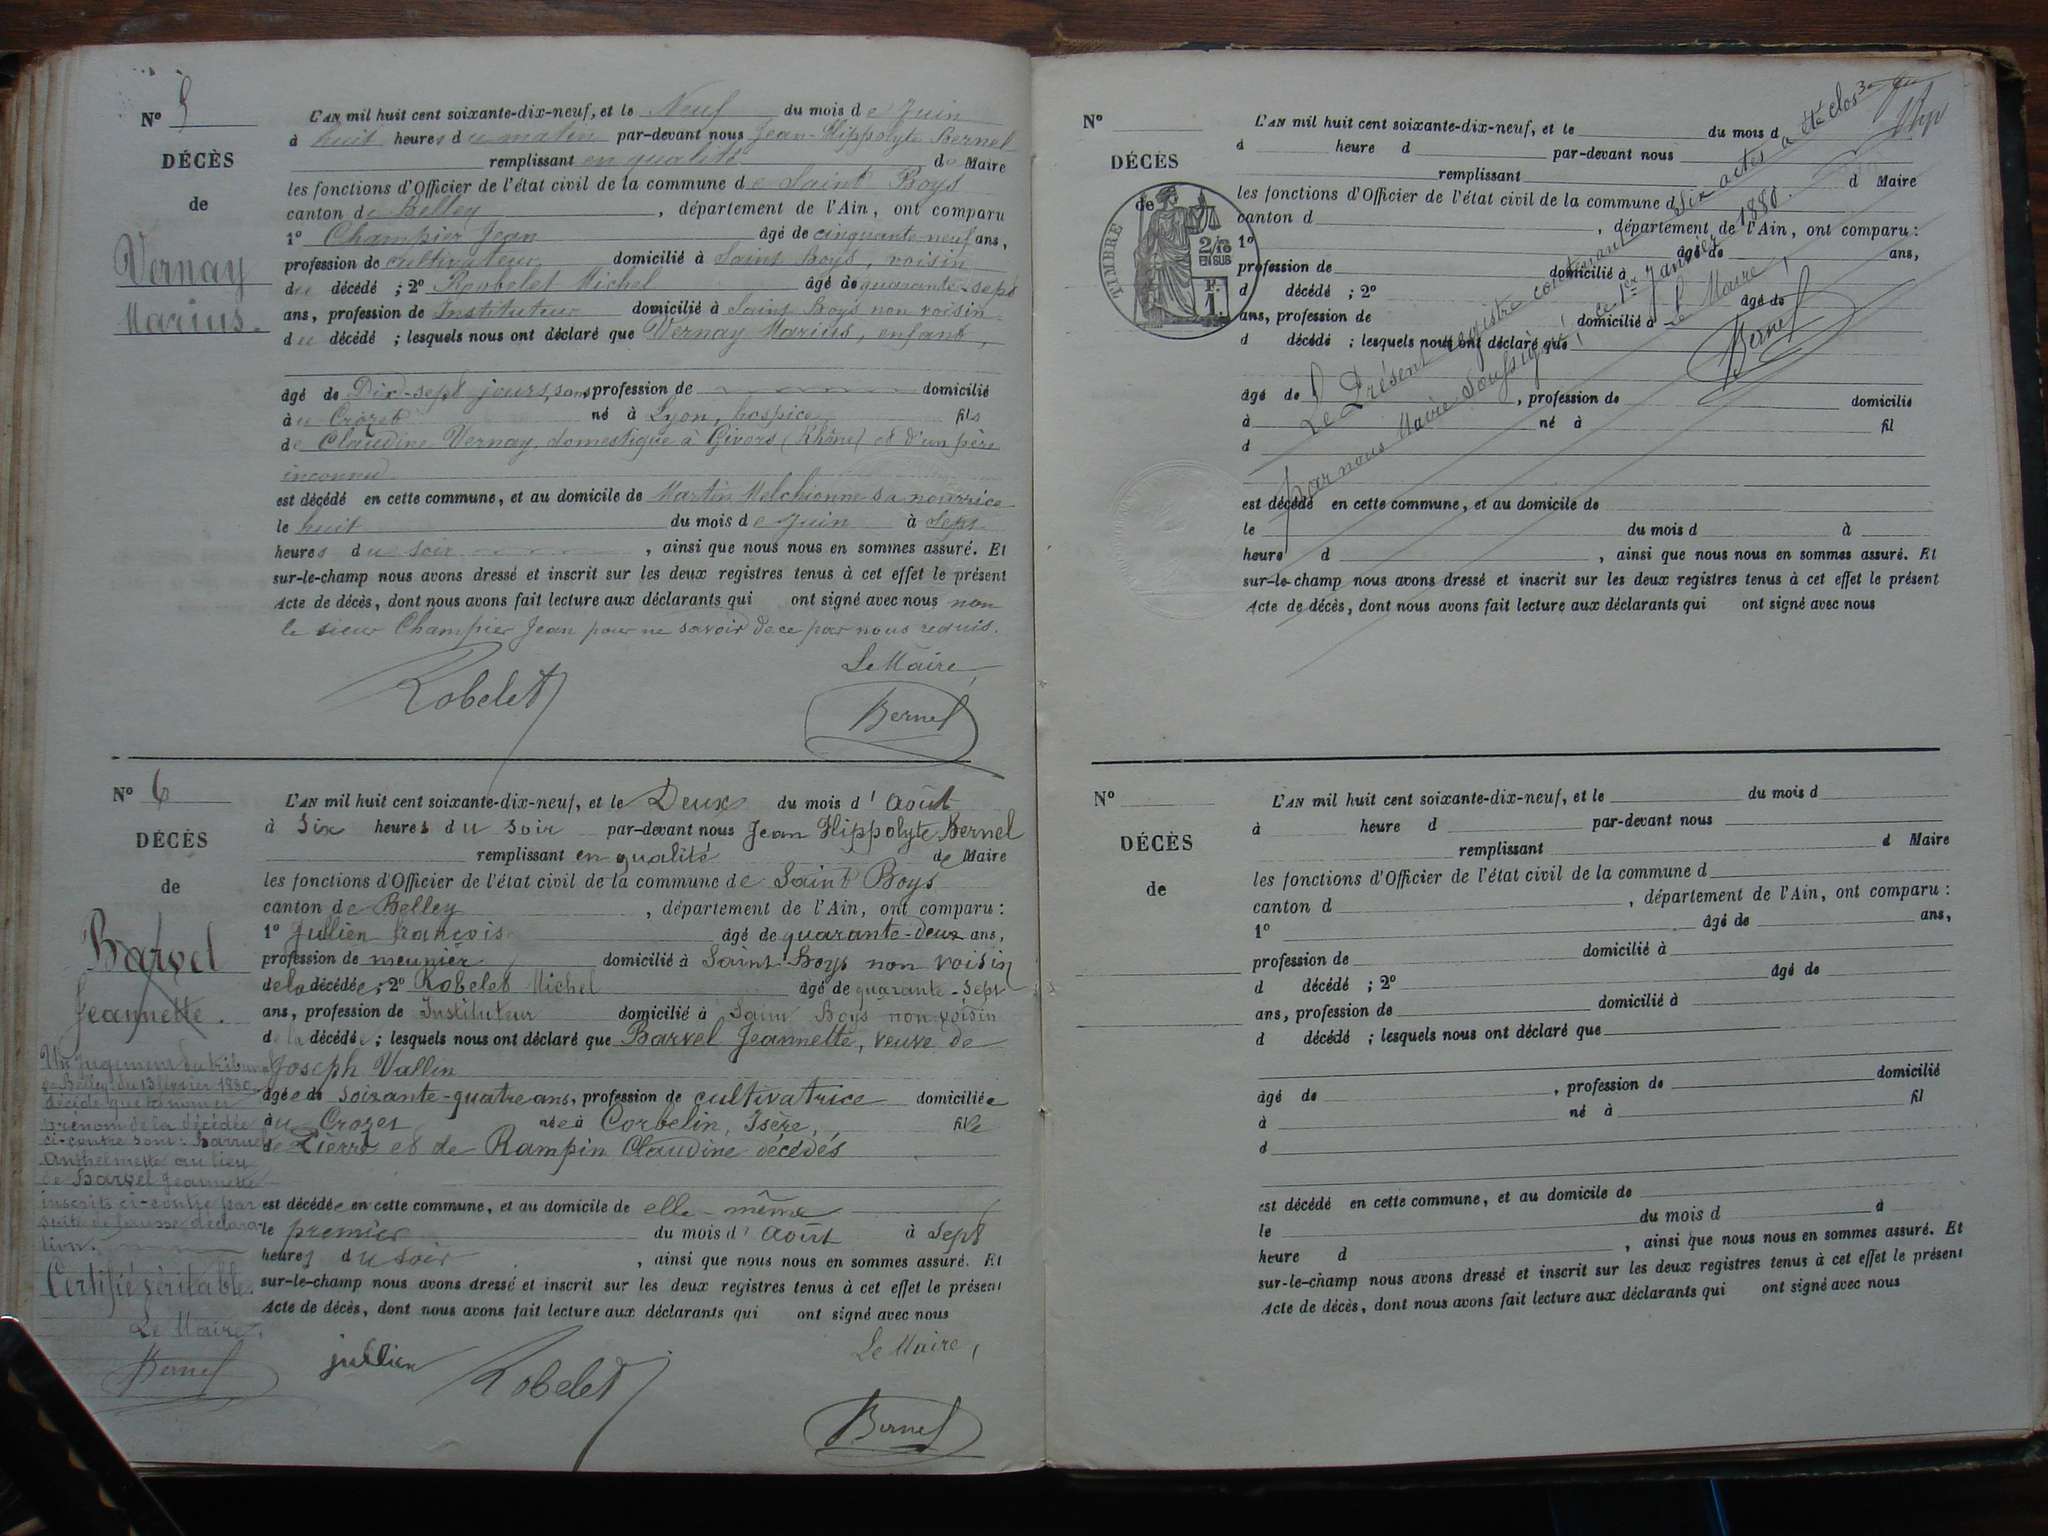 Nº 5
DÉCÈS
de
Vernay
Marius.
L'AN mil huit cent soixante-dix-neuf, et le Neuf du mois de Juin
à huit heures du matin par-devant nous Jean-Hippolyte Bernel
remplissant en qualité de Maire
les fonctions d'Officier de l'état civil de la commune de Saint Boys
canton de Belley, département de l'Ain, ont comparu
1º Champier Jean âgé de cinquante-neuf ans,
profession de cultivateur domicilié à Saint Boys, voisin
du décédé ; 2º Robelet Michel âgé de quarante-sept
ans, profession de Instituteur domicilié à Saint Boys non voisin
du décédé ; lesquels nous ont déclaré que Vernay Marius, enfant,
âgé de Dix-sept jours, sans profession de domicilié
àu Crozet né à Lyon, hospice fils
de Claudine Vernay, domestique à Givors (Rhône) et d'un père
inconnu
est décédé en cette commune, et au domicile de Martin Melchionne sa nourrice
le huit du mois de Juin à Sept
heures du soir, ainsi que nous nous en sommes assuré. Et
sur-le-champ nous avons dressé et inscrit sur les deux registres tenus à cet effet le présent
Acte de décès, dont nous avons fait lecture aux déclarants qui ont signé avec nous non
le sieur Champier Jean pour ne savoir de ce par nous requis.
Le Maire,
Robelet
Bernel
Nº 6
DÉCÈS
de
Barvel
Jeannette.
Un jugement du tribunal
de Belley du 13 février 1880
décide que le nom et
prénom de la décédée
ci-contre sont : Barruel
Anthelmette au lieu
de Barvel Jeannette
inscrits ci-contre par
suite de fausse déclara-
tion.
Certifié véritable.
Le Maire,
Bernel
L'AN mil huit cent soixante-dix-neuf, et le Deux du mois d'Août
à Six heures du soir par-devant nous Jean Hippolyte Bernel
remplissant en qualité de Maire
les fonctions d'Officier de l'état civil de la commune de Saint Boys
canton de Belley, département de l'Ain, ont comparu :
1º Jullien françois âgé de quarante-deux ans,
profession de meunier domicilié à Saint Boys non voisin
de la décédée ; 2º Robelet Michel âgé de quarante-sept
ans, profession de Instituteur domicilié à Saint Boys non voisin
de la décédée ; lesquels nous ont déclaré que Barvel Jeannette, veuve de
Joseph Vallin
âgée de soixante-quatre ans, profession de cultivatrice domiciliée
àu Crozet née à Corbelin, Isère, fille
de Pierre et de Rampin Claudine décédés
est décédée en cette commune, et au domicile de elle-même
le premier du mois d'Août à Sept
heures du soir, ainsi que nous nous en sommes assuré. Et
sur-le-champ nous avons dressé et inscrit sur les deux registres tenus à cet effet le présent
Acte de décès, dont nous avons fait lecture aux déclarants qui ont signé avec nous
Le Maire,
jullien
Robelet
Bernel
Nº
DÉCÈS
de
TIMBRE
2/10
EN SUS
F.
1.
L'AN mil huit cent soixante-dix-neuf, et le du mois d
à heure d par-devant nous
remplissant d Maire
les fonctions d'Officier de l'état civil de la commune d
canton d , département de l'Ain, ont comparu :
1º âgé de ans,
profession de domicilié à
d décédé ; 2º âgé de
ans, profession de domicilié à
d décédé ; lesquels nous ont déclaré que
âgé de , profession de domicilié
à né à fil
d
est décédé en cette commune, et au domicile de
le du mois d à
heure d , ainsi que nous nous en sommes assuré. Et
sur-le-champ nous avons dressé et inscrit sur les deux registres tenus à cet effet le présent
Acte de décès, dont nous avons fait lecture aux déclarants qui ont signé avec nous
Le Présent registre contenant Six actes a été clos
par nous Maire Soussigné, ce 1er Janvier 1880.
Le Maire,
Bernel
Nº
DÉCÈS
de
L'AN mil huit cent soixante-dix-neuf, et le du mois d
à heure d par-devant nous
remplissant d Maire
les fonctions d'Officier de l'état civil de la commune d
canton d , département de l'Ain, ont comparu :
1º âgé de ans,
profession de domicilié à
d décédé ; 2º âgé de
ans, profession de domicilié à
d décédé ; lesquels nous ont déclaré que
âgé de , profession de domicilié
à né à fil
d
est décédé en cette commune, et au domicile de
le du mois d à
heure d , ainsi que nous nous en sommes assuré. Et
sur-le-champ nous avons dressé et inscrit sur les deux registres tenus à cet effet le présent
Acte de décès, dont nous avons fait lecture aux déclarants qui ont signé avec nous